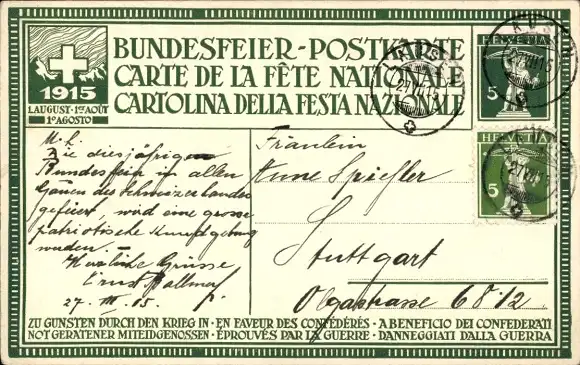 BUNDESFEIER-POSTKARTE
CARTE DE LA FÊTE NATIONALE
CARTOLINA DELLA FESTA NAZIONALE
1915
1. AUGUST · 1er AOÛT
1º AGOSTO
HELVETIA
5
HELVETIA
5
Die diesjährigen
Bundesfeier in allen
Gauen des Schweizerlandes
gefeiert, wird eine grosse
patriotische Kundgebung
werden. –
Herzliche Grüsse
Ernst
27.
Fräulein
Anne
Stuttgart
Olgastrasse 68
ZU GUNSTEN DURCH DEN KRIEG IN · EN FAVEUR DES CONFÉDÉRÉS · A BENEFICIO DEI CONFEDERATI
NOT GERATENER MITEIDGENOSSEN · ÉPROUVÉS PAR LA GUERRE · DANNEGGIATI DALLA GUERRA